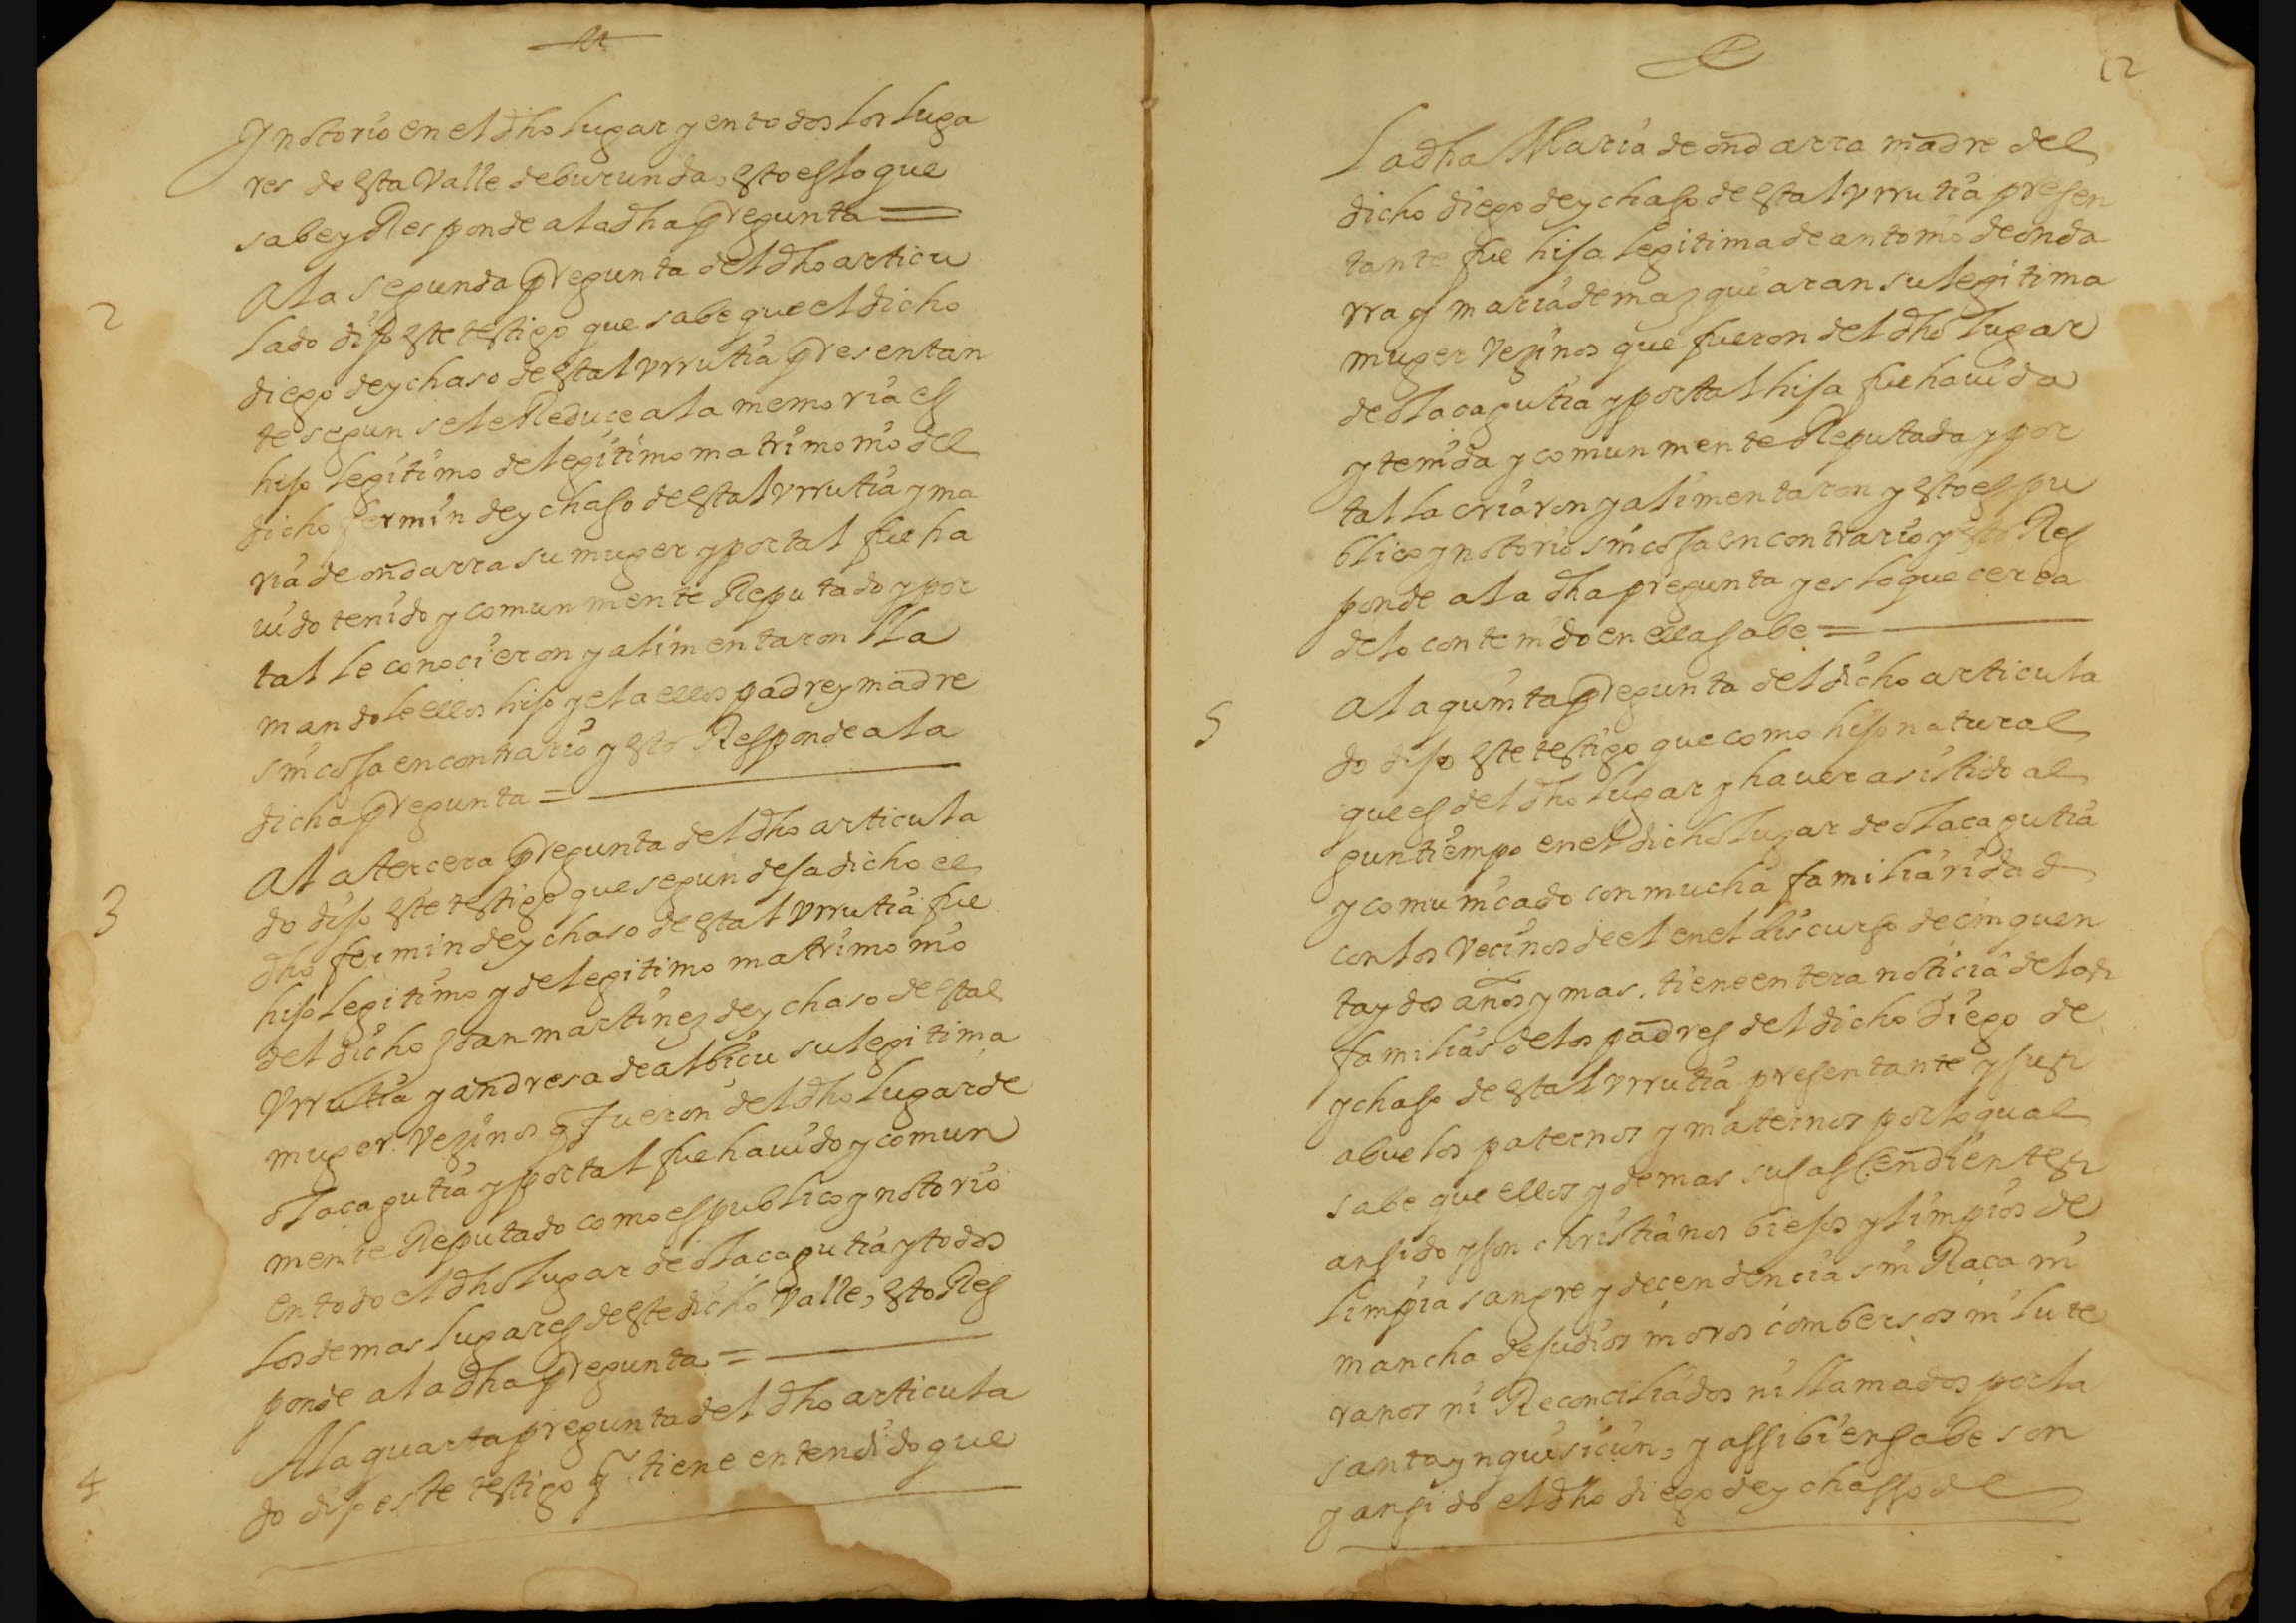 Y notorio en el dho lugar y en todos los luga
res de esta Valle de burunda, esto es lo que
sabe y Responde a la dha pregunta =
2
A la segunda pregunta del dho articu
lado dijo este testigo que sabe que el dicho
diego de ychaso de estal Vrrutia presentan
te segun se le Reduce a la memoria es
hijo legitimo de legitimo matrimonio del
dicho fermin de ychaso de estal Vrrutia y ma
ria de ondarra su muger y por tal fue ha
uido tenido y comunmente Reputado y por
tal le conocieron y alimentaron lla
mandole ellos hijo y el a ellos padre y madre
sin cossa en contrario y esto Responde a la
dicha pregunta =
3
A la tercera pregunta del dho articula
do dijo este testigo que segun deja dicho el
dho fermin de ychaso de estal Vrrutia fue
hijo legitimo y de legitimo matrimonio
del dicho Joan martinez de ychaso de estal
Vrrutia y andresa de albicu su legitima
muger. Vezinos q fueron del dho lugar de
olacagutia y por tal fue hauido y comun
mente Reputado como es publico y notorio
en todo el dho lugar de olacagutia y todos
los demas lugares deste dicho Valle, esto Res
ponde a la dha pregunta =
4
A la quarta pregunta del dho articula
do dijo este testigo q tiene entendido que
12
La dha Maria de ondarra madre del
dicho diego de ychaso de estal Vrrutia presen
tante fue hija legitima de antonio de onda
rra y maria de mazquiaran su legitima
muger Vezinos que fueron del dho lugar
de olacagutia y por tal hija fue hauida
y tenida y comunmente Reputada y por
tal la criaron y alimentaron y esto es pu
blico y notorio sin cossa en contrario y esto Res
ponde a la dha pregunta y es lo que cerca
de lo contenido en ella sabe =
5
A la quinta pregunta del dicho articula
do dijo este testigo que como hijo natural
que es del dho lugar y hauer asistido al
gun tiempo en el dicho lugar de olacagutia
y comunicado con mucha familiaridad
con los Vecinos de el en el discurso de cinquen
ta y dos años y mas. tiene entera noticia de las
familias de los padres del dicho diego de
ychaso de estal Vrrutia presentante y sus
abuelos paternos y maternos por lo qual
sabe que ellos y demas sus ascendientes
an sido y son christianos biejos y limpios de
limpia sangre y decendencia sin Raca ni
mancha de judios moros combersos ni lute
ranos ni Reconciliados ni llamados por la
santa ynquisicion, y assi bien sabe son
y an sido el dho diego de ychasso de